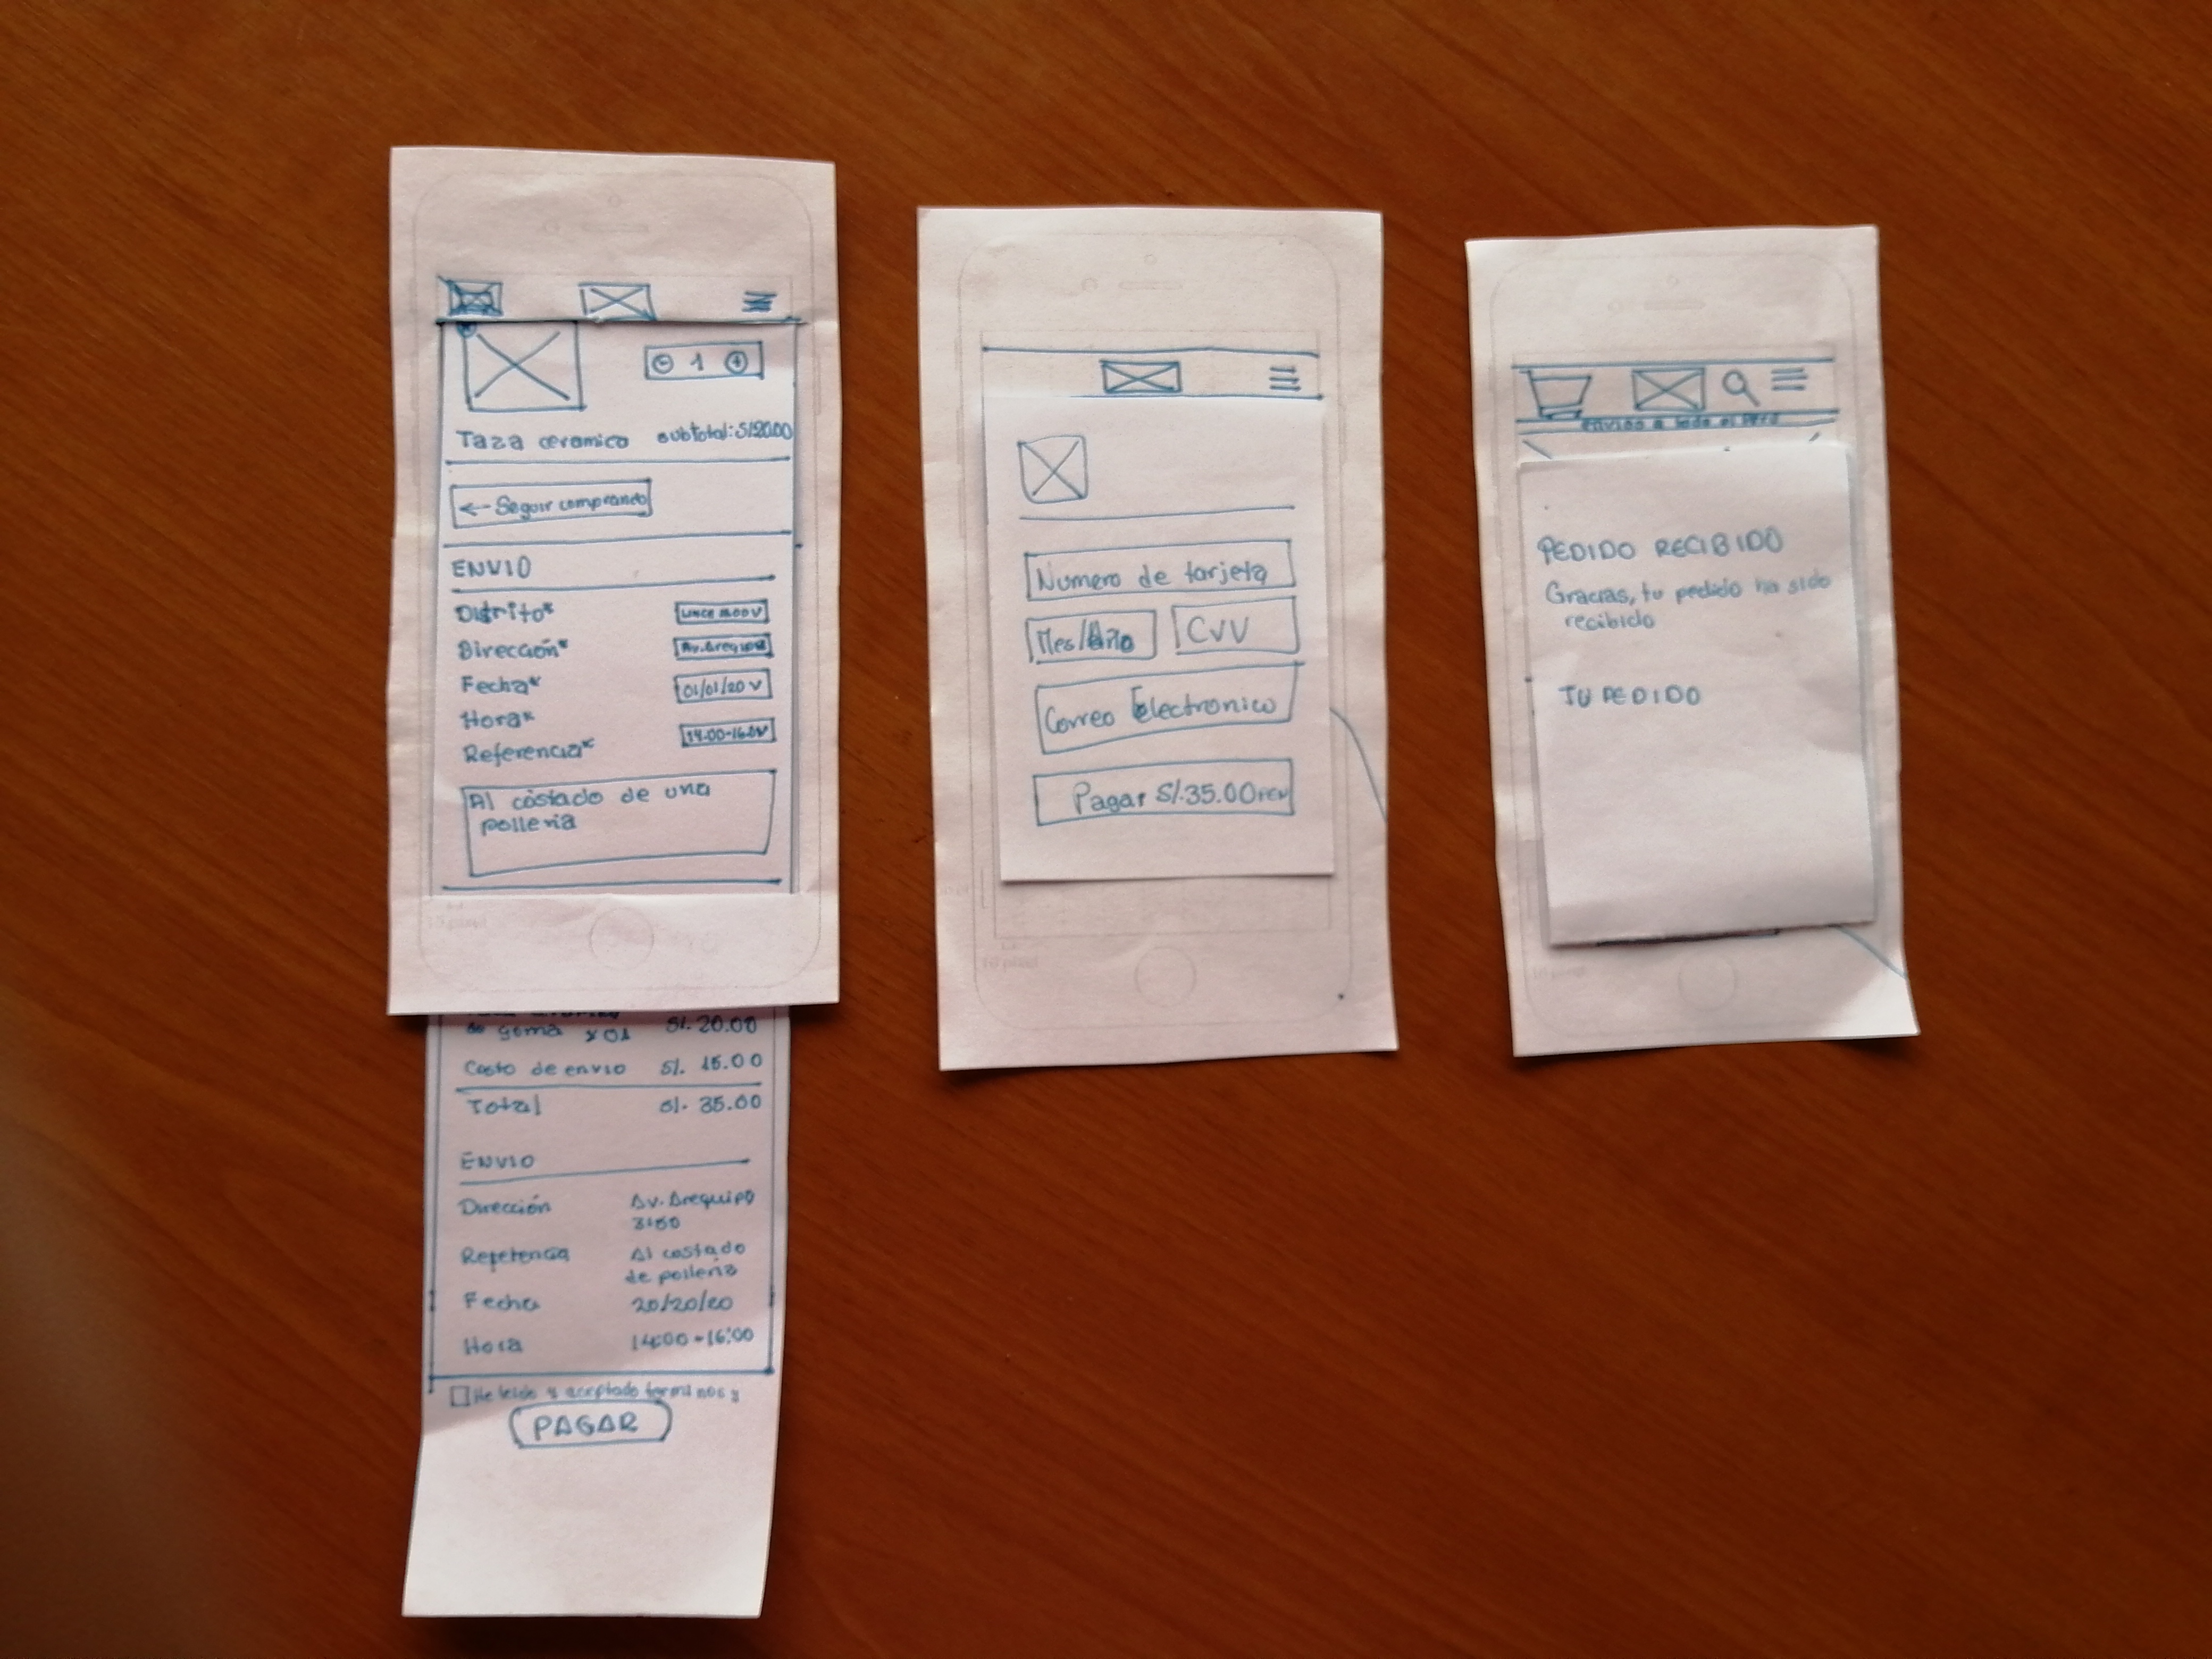 1
Taza ceramica subtotal: S/.20.00
<- Seguir comprando
ENVIO
Distrito*
Dirección* Av. Arequipa
Fecha* 01/01/20 V
Hora* 14:00-16:00
Referencia*
Al costado de una
polleria
de goma x 01 S/. 20.00
Costo de envio S/. 15.00
Total S/. 35.00
ENVIO
Dirección Av. Arequipa
Referencia Al costado
de polleria
Fecha 20/20/20
Hora 14:00-16:00
He leido y aceptado terminos y
PAGAR
Numero de tarjeta
Mes/Año CVV
Correo Electronico
Pagar S/.35.00 PEN
envios a todo el Perú
PEDIDO RECIBIDO
Gracias, tu pedido ha sido
recibido
TU PEDIDO